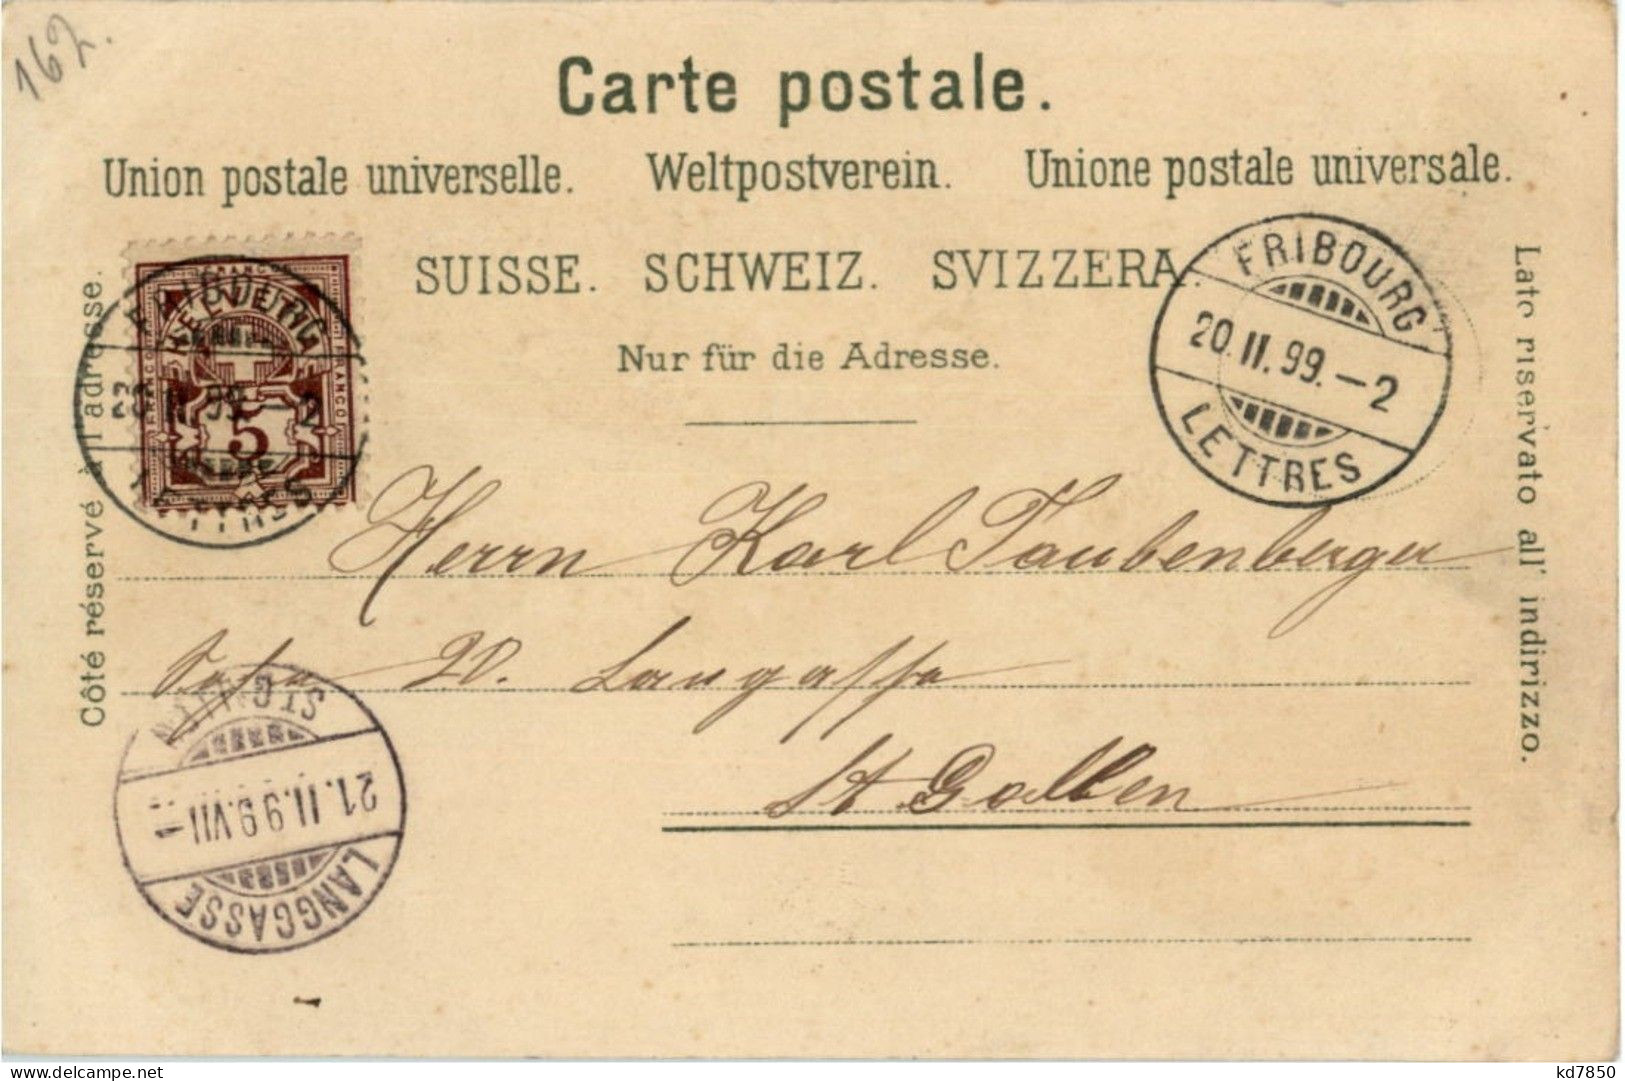 162.
Carte postale.
Union postale universelle. Weltpostverein. Unione postale universale.
SUISSE. SCHWEIZ. SVIZZERA.
Nur für die Adresse.
Côté réservé à l'adresse.
Lato riservato all' indirizzo.
FRANCO
HELVETIA
FRANCO
FRANCO
5
FRIBOURG
99.–2
LETTRES
FRIBOURG
20.II.99.–2
LETTRES
Herrn Karl Taubenberger
20. Langgasse
St. Gallen
ST.G
21.II.99.VII–
LANGGASSE
kd7850